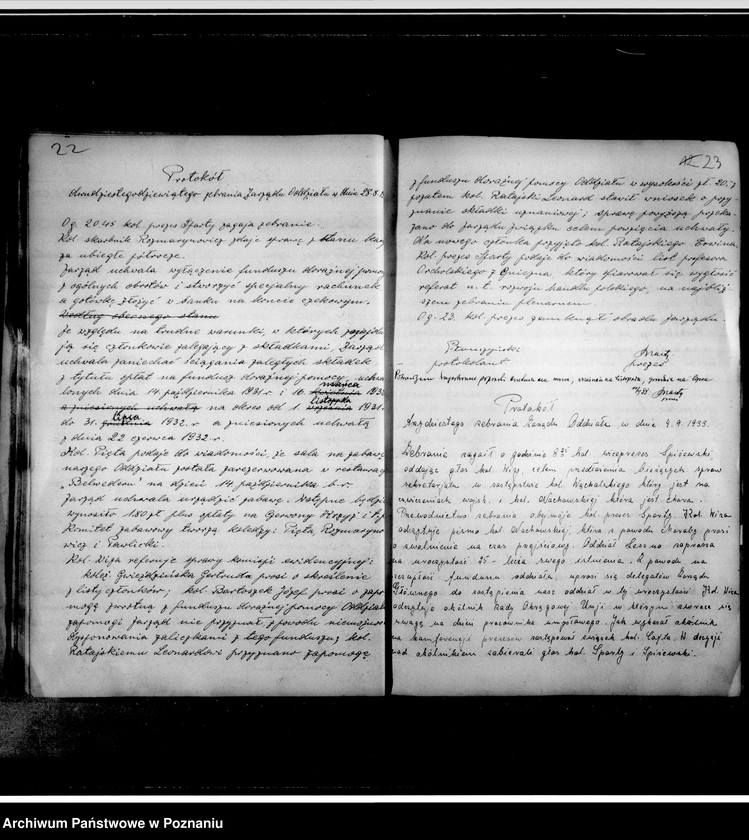 22
Protokół
dwudziestegodziewiątego zebrania Zarządu Oddziału w dniu 28.8.
O g. 20.45 kol. prezes Sparty zagaja zebranie.
Kol. skarbnik Rozmarynowicz zdaje sprawę z stanu
za ubiegłe półrocze.
Zarząd uchwala wyłączenie funduszu doraźnej pomocy
z ogólnych obrotów i stworzyć specjalny rachunek
a gotówkę złożyć w banku na koncie czekowym.
Według obecnego stanu
Ze względu na trudne warunki, w których znajdu
ją się członkowie zalegający z składkami, Zarząd
uchwala zaniechać ściągania zaległych składek
z tytułu opłat na fundusz doraźnej pomocy, uchwa
lonych dnia 14 października 1931 r. i 16. marca
na okres od 1. listopada 1931
do 31. lipca 1932 r. a zniesionych uchwałą
z dnia 22 czerwca 1932 r.
Kol. Pięta podaje do wiadomości, że sala na zabawę
naszego Oddziału została zarezerwowana w restaurac
"Belweder" na dzień 14 października b.r.
Zarząd uchwala urządzić zabawę. Wstępne będzie
wynosiło 1.80 zł plus opłaty na Czerwony Krzyż i
Komitet zabawowy tworzą koledzy: Pięta, Rozmaryno
wicz i Pawlicki.
Kol. Wiza referuje sprawy komisji ewidencyjnej:
koleż. Gwieździńska Gertruda prosi o skreślenie
z listy członków; kol. Bartoszek Józef prosi o zapo
mogę zwrotną z funduszu doraźnej pomocy Oddziału
zapomogi Zarząd nie przyznał z powodu niemożnoś
dysponowania zaliczkami z tego funduszu; kol.
Ratajskiemu Leonardowi przyznano zapomogę
23
z funduszu doraźnej pomocy Oddziału w wysokości zł. 20,-;
pozatem kol. Ratajski Leonard stawił wniosek o przy
znanie składki uznaniowej; sprawę powyższą przeka
zano do Zarządu Związku celem powzięcia uchwały.
Na nowego członka przyjęto kol. Ratajskiego Erwina.
Kol. prezes Sparty podaje do wiadomości list profesora
Orcholskiego z Gniezna, który ofiarował się wygłosić
referat n. t. rozwoju handlu polskiego, na najbliż
szem zebraniu plenarnem.
O g. 23. kol. prezes zamknął obrady Zarządu.
protokolant
prezes
Protokół
trzydziestego zebrania Zarządu Oddziału w dniu 4.9.1933.
Zebranie zagaił o godzinie 8 kol. wiceprezes Śpiżewski,
oddając głos kol. Wizy, celem przedłożenia bieżących spraw
sekretarjatu w zastępstwie kol. Wachalskiego który jest na
ćwiczeniach wojsk. i kol. Wachowskiej która jest chora.
Przewodnictwo zebrania obejmuje kol. prezes Sparty. Kol. Wiza
odczytuje pismo kol. Wachowskiej, która z powodu choroby prosi
o zwolnienie na czas przejściowy. Oddział Leszno zaprasza
na uroczystość 25-lecia swego istnienia. Z powodu na
szczupłość funduszu oddziału, uprosi się delegatów Zarządu
Głównego do zastąpienia nasz oddział w tej uroczystości. Kol. Wiza
odczytuje okólnik Rady Okręgowej Unji w którym zwraca się
uwagę na dzień pracownika umysłowego. Jak wykazał okólnik
na konferencji prezesów zastępował związek kol. Cajta. W dyskusji
nad okólnikiem zabierali głos kol. Sparty i Śpiżewski.
Archiwum Państwowe w Poznaniu